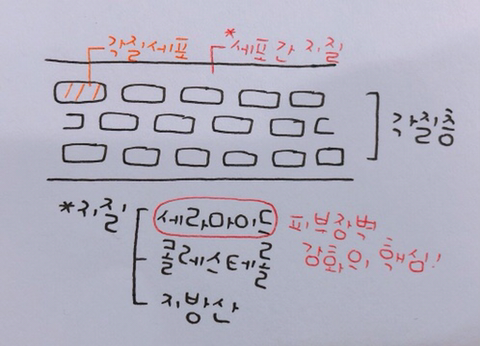 각질세포
*세포 간 지질
각질층
*지질
세라마이드
콜레스테롤
지방산
피부장벽
강화의 핵심!